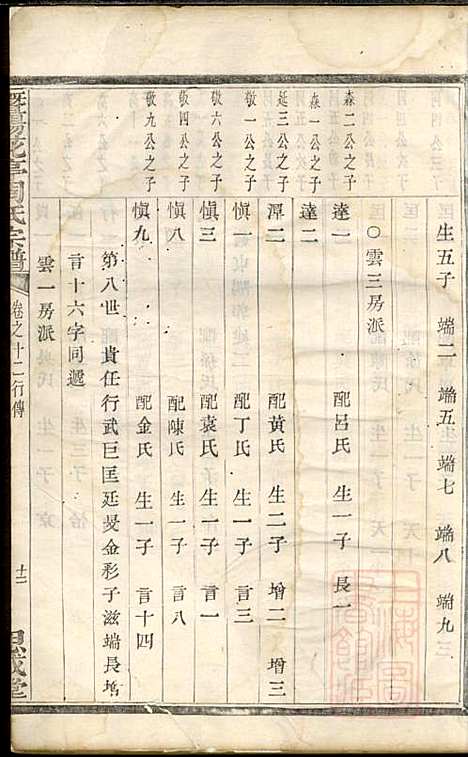 生五子 端二 端五 端七 端八 端九
○雲三房派
森二公之子 達一 配呂氏 生一子 長一
森一公之子 達二
延三公之子 潭二 配黃氏 生二子 增二 增三
敬一公之子 愼一 配丁氏 生一子 言三
敬六公之子 愼三 配袁氏 生一子 言一
敬四公之子 愼八 配陳氏 生一子 言八
敬九公之子 愼九 配金氏 生一子 言十四
第八世 貴任行武巨匡延晸金彩子滋端長增
言十六字同遞
雲一房派
暨陽花亭周氏宗譜 卷之廿二行傳 十二 思成堂